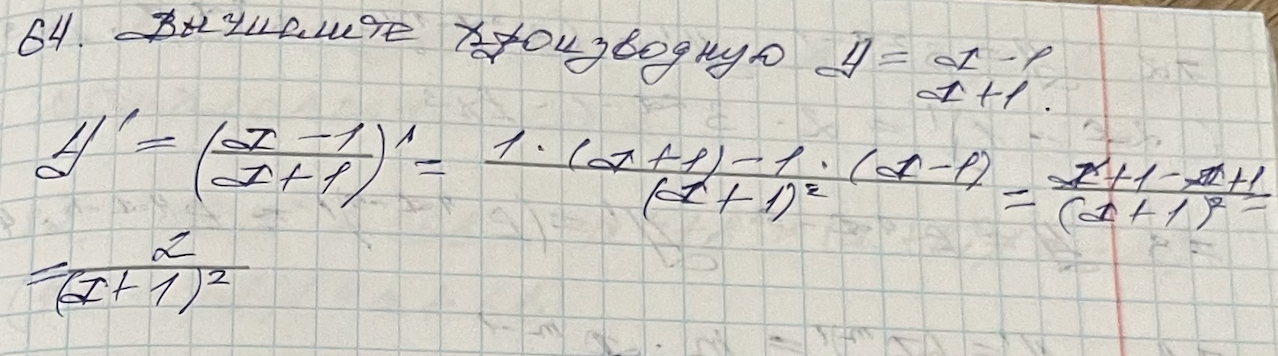 64. Вычислите производную y = x - 1
x + 1.
y' = (x - 1 / x + 1)' = 1 · (x + 1) - 1 · (x - 1) / (x + 1)² = x + 1 - x + 1 / (x + 1)² =
= 2 / (x + 1)²